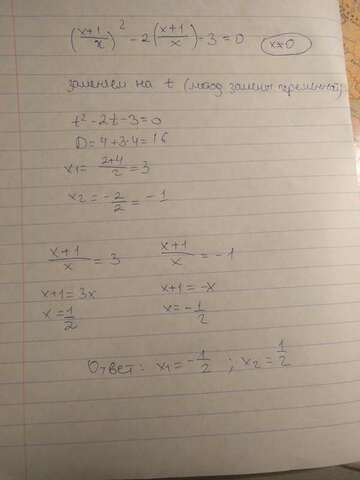 ((x+1)/x)² - 2((x+1)/x) - 3 = 0 x≠0
заменяем на t (метод замены переменной)
t² - 2t - 3 = 0
D = 4 + 3·4 = 16
x₁ = (2+4)/2 = 3
x₂ = -2/2 = -1
(x+1)/x = 3 (x+1)/x = -1
x+1 = 3x x+1 = -x
x = 1/2 x = -1/2
Ответ: x₁ = -1/2 ; x₂ = 1/2